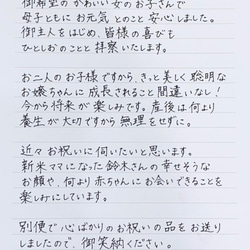 御希望の かわいい女のお子さんで
母子ともに お元気 とのこと 安心しました。
御主人をはじめ、皆様の喜びも
ひとしおのことと 拝察いたします。
お二人のお子様ですから、きっと美しく 聡明な
お嬢ちゃんに 成長されること 間違いなし!
今から将来が 楽しみです。産後は何より
養生が大切ですから 無理をせずに。
近々 お祝いに 伺いたいと思います。
新米ママになった 鈴木さんの 幸せそうな
お顔や、何より 赤ちゃんに お会いできることを
楽しみにしています。
別便で 心ばかりの お祝いの品を お送り
しましたので、御笑納ください。